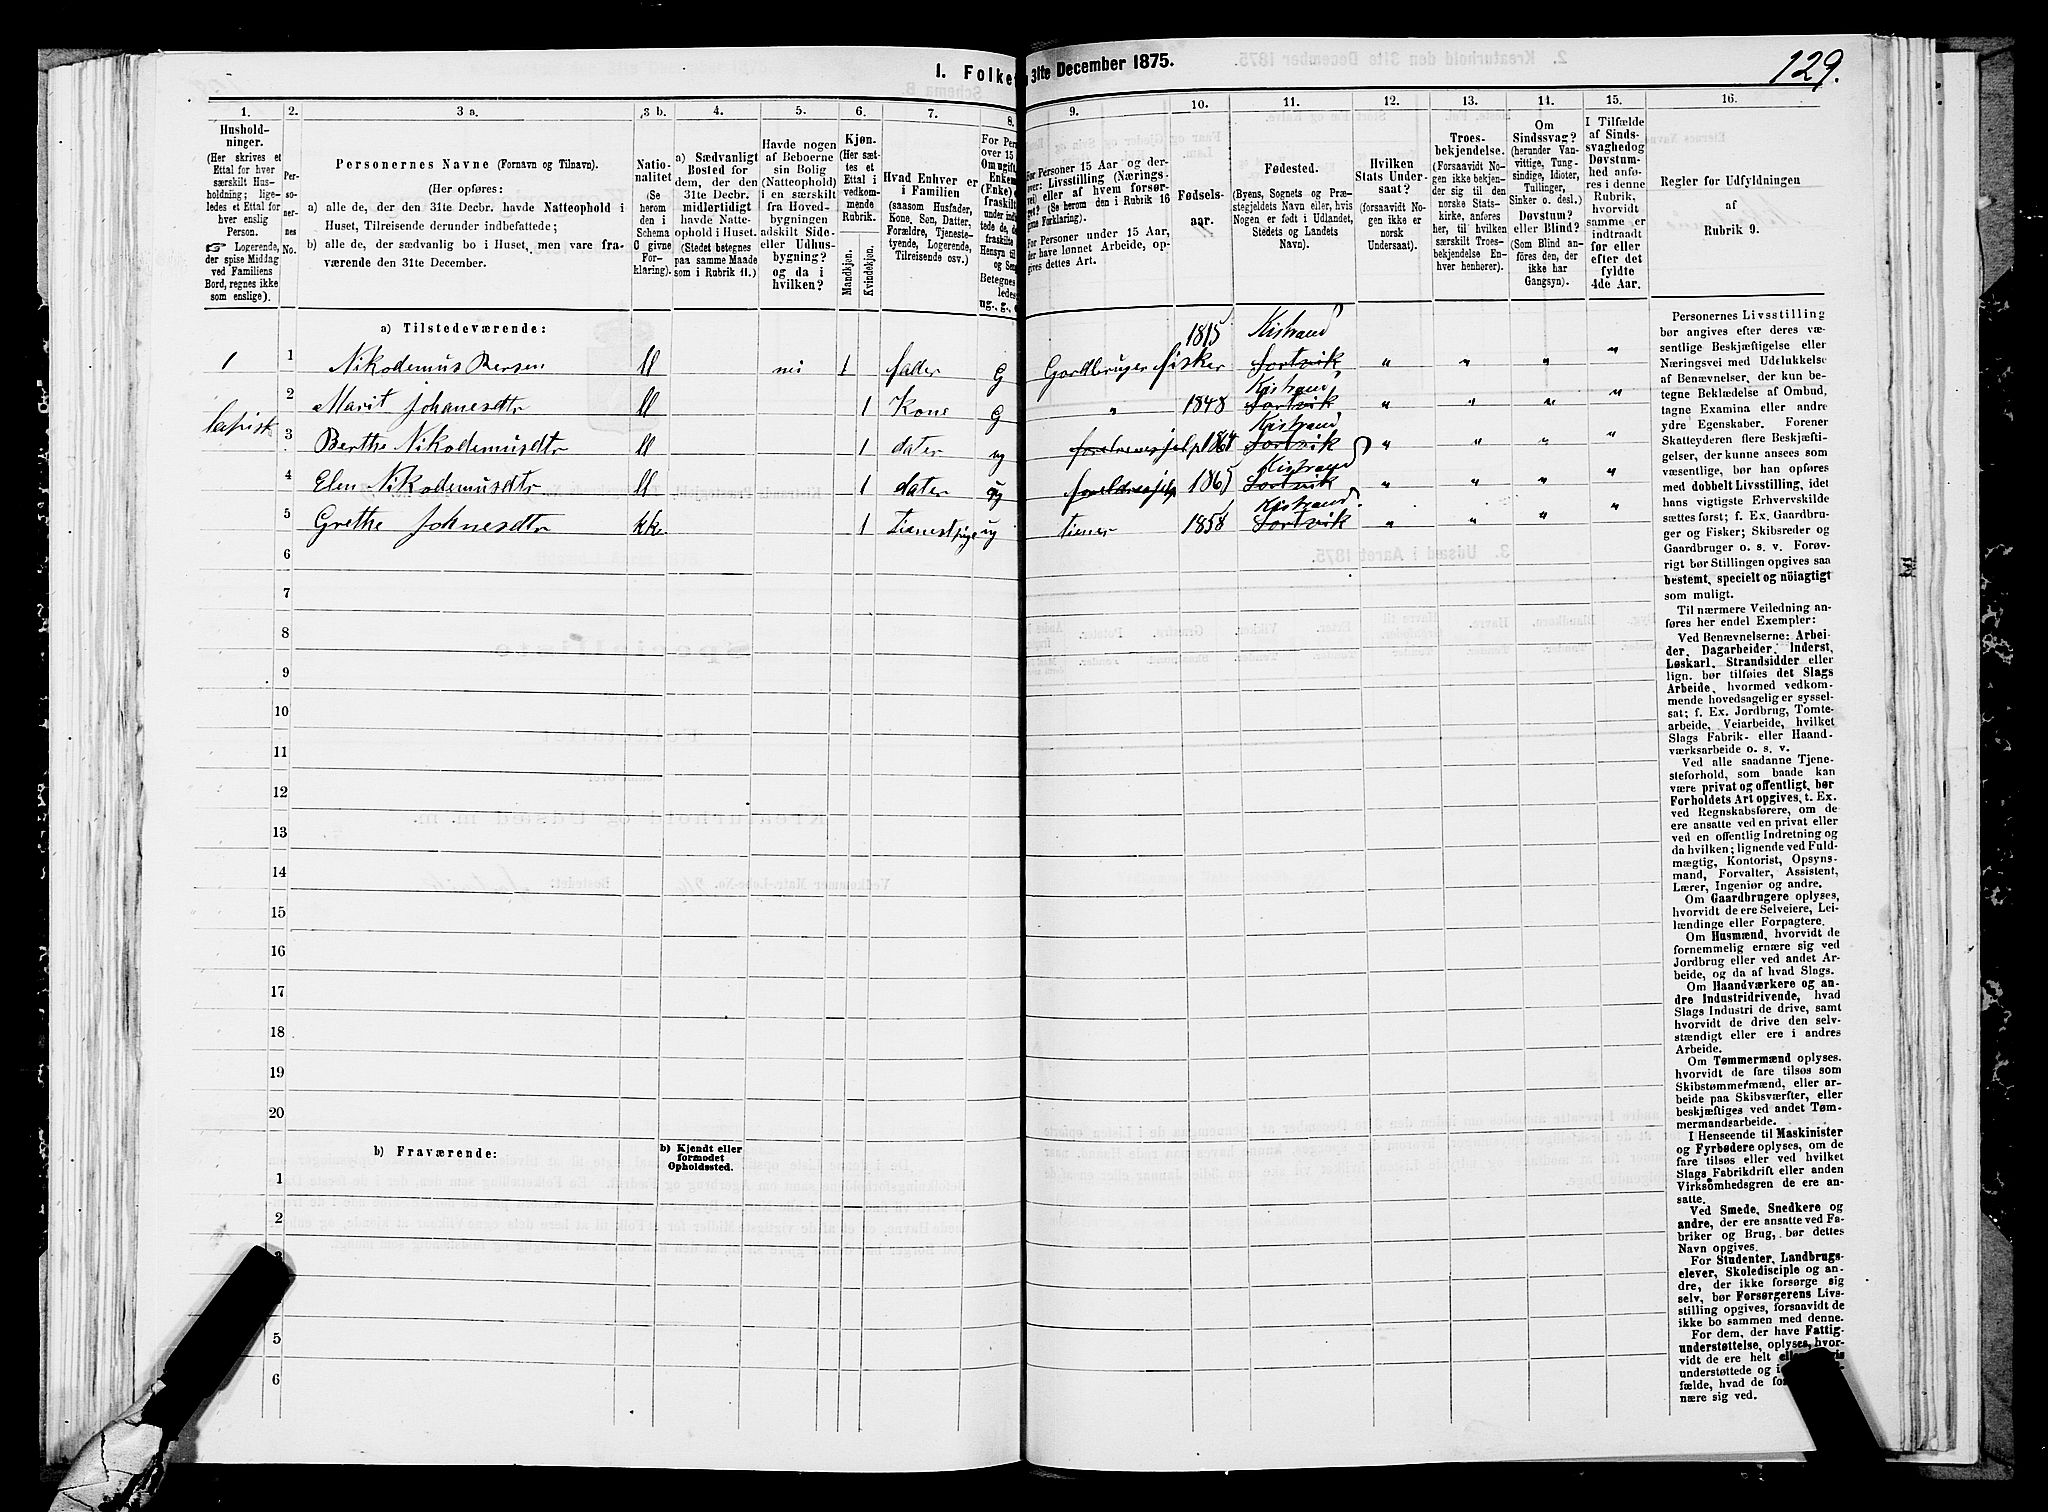 I. Folke
31te December 1875.
129.
1.
Hushold-
ninger.
(Her skrives et
Ettal for hver
særskilt Hus-
holdning; lige-
ledes et Ettal for
hver enslig
Person.
☞ Logerende,
der spise Middag
ved Familiens
Bord, regnes ikke
som enslige).
2.
Per-
so-
ner-
nes
No.
3 a.
Personernes Navne (Fornavn og Tilnavn).
(Her opføres:
a) alle de, der den 31te Decbr. havde Natteophold i
Huset, Tilreisende derunder indbefattede;
b) alle de, der sædvanlig bo i Huset, men vare fra-
værende den 31te December.
3 b.
Natio-
nalitet
(Se
herom
den i
Schema
C givne
For-
klaring).
4.
a) Sædvanligt
Bosted for
dem, der den
31te Decbr.
midlertidigt
havde Natte-
ophold i Huset.
(Stedet betegnes
paa samme Maade
som i Rubrik 11.)
5.
Havde nogen
af Beboerne
sin Bolig
(Natteophold)
i en særskilt
fra Hoved-
bygningen
adskilt Side-
eller Udhus-
bygning?
og da i
hvilken?
6.
Kjøn.
(Her sæt-
tes et
Ettal i
vedkom-
mende
Rubrik.
Mandkjøn.
Kvindekjøn.
7.
Hvad Enhver er
i Familien
(saasom Husfader,
Kone, Søn, Datter,
Forældre, Tjeneste-
tyende, Logerende,
Tilreisende osv.)
8.
For Per
over 15
Om ugift
Enkem
(Enke) e
fraskilt
under ind
tede de, d
fraskilte
Hensyn til
og Sen
Betegnes
ledes
ug., g., e
9.
For Personer 15 Aar og der-
over: Livsstilling (Nærings-
vei) eller af hvem forsør-
get? (Se herom den i Rubrik 16
givne Forklaring).
For Personer under 15 Aar,
der have lønnet Arbeide, op-
gives dettes Art.
10.
Fødsels-
aar.
11.
Fødested.
(Byens, Sognets og Præ-
stegjeldets Navn eller, hvis
Nogen er født i Udlandet,
Stedets og Landets
Navn).
12.
Hvilken
Stats Under-
saat?
(forsaavidt No-
gen ikke er
norsk
Undersaat).
13.
Troes-
bekjendelse.
(Forsaavidt No-
gen ikke bekjen-
der sig til den
norske Stats-
kirke, anføres
her, til hvilken
særskilt Troes-
bekjendelse En-
hver henhører).
14.
Om
Sindssvag?
(herunder Van-
vittige, Tung-
sindige, Idioter,
Tullinger,
Sinker o. desl.)
Døvstum?
eller Blind?
(Som Blind an-
føres den, der
ikke har
Gangsyn).
15.
I Tilfælde
af Sinds-
svaghed og
Døvstum-
hed anfø-
res i denne
Rubrik,
hvorvidt
samme er
indtraadt
før eller
efter det
fyldte
4de Aar.
16.
Regler for Udfyldningen
af
Rubrik 9.
a) Tilstedeværende:
1 1 Nikodemus Bersen ll nei 1 fader G Gardbruger fisker 1815 Kistrand Sortvik " " " "
2 Marit Johanesdtr ll 1 Kone G " 1848 Kistrand Sortvik " " " "
lapisk
3 Berthe Nikodemusdtr ll 1 dater ug 1864 Kistrand Sortvik " " " "
4 Elen Nikodemusdtr ll 1 dater ug 1865 Kistrand Sortvik " " " "
5 Grethe Johnesdtr kk. 1 ug tiener 1858 Kistrand Sortvik " " " "
6
7
8
9
10
11
12
13
14
15
16
17
18
19
20
b) Fraværende:
b) Kjendt eller
formodet
Opholdssted.
1
2
3
5
6
Personernes Livsstilling
bør angives efter deres væ-
sentlige Beskjæftigelse eller
Næringsvei med Udelukkelse
af Benævnelser, der kun be-
tegne Beklædelse af Ombud,
tagne Examina eller andre
ydre Egenskaber. Forener
Skatteyderen flere Beskjæfti-
gelser, der kunne ansees som
væsentlige, bør han opføres
med dobbelt Livsstilling, idet
hans vigtigste Erhvervskilde
sættes først; f. Ex. Gaardbru-
ger og Fisker; Skibsreder og
Gaardbruger o. s. v. Forøv-
rigt bør Stillingen opgives saa
bestemt, specielt og nöiagtigt
som muligt.
Til nærmere Veiledning an-
føres her endel Exempler:
Ved Benævnelserne: Arbei-
der, Dagarbeider, Inderst,
Løskarl, Strandsidder eller
lign. bør tilføies det Slags
Arbeide, hvormed vedkom-
mende hovedsagelig er syssel-
sat; f. Ex. Jordbrug, Tomte-
arbeide, Veiarbeide, hvilket
Slags Fabrik- eller Haand-
værksarbeide o. s. v.
Ved alle saadanne Tjene-
steforhold, som baade kan
være privat og offentligt, bør
Forholdets Art opgives, t. Ex.
ved Regnskabsførere, om de
ere ansatte ved en privat eller
ved en offentlig Indretning og
da hvilken; lignende ved Fuld-
mægtig, Kontorist, Opsyns-
mand, Forvalter, Assistent,
Lærer, Ingeniør og andre.
Om Gaardbrugere oplyses,
hvorvidt de ere Selveiere, Lei-
lændinge eller Forpagtere.
Om Husmænd, hvorvidt de
fornemmelig ernære sig ved
Jordbrug eller ved andet Ar-
beide, og da af hvad Slags.
Om Haandværkere og an-
dre Industridrivende, hvad
Slags Industri de drive, samt
hvorvidt de drive den selv-
stændigt eller ere i andres
Arbeide.
Om Tømmermænd oplyses.
hvorvidt de fare tilsøs som
Skibstømmermænd, eller ar-
beide paa Skibsværfter, eller
beskjæftiges ved andet Tøm-
mermandsarbeide.
I Henseende til Maskinister
og Fyrbødere oplyses, om de
fare tilsøs eller ved hvilket
Slags Fabrikdrift eller anden
Virksomhedsgren de ere an-
satte.
Ved Smede, Snedkere og
andre, der ere ansatte ved Fa-
briker og Brug, bør dettes
Navn opgives.
For Studenter, Landbrugs-
elever, Skoledisciple og an-
dre, der ikke forsørge sig
selv, bør Forsørgerens Livs-
stilling opgives, forsaavidt de
ikke bo sammen med denne.
For dem, der have Fattig-
understøttelse, oplyses, hvor-
vidt de ere helt
understøttede og i
fælde, hvad de
nære sig ved.